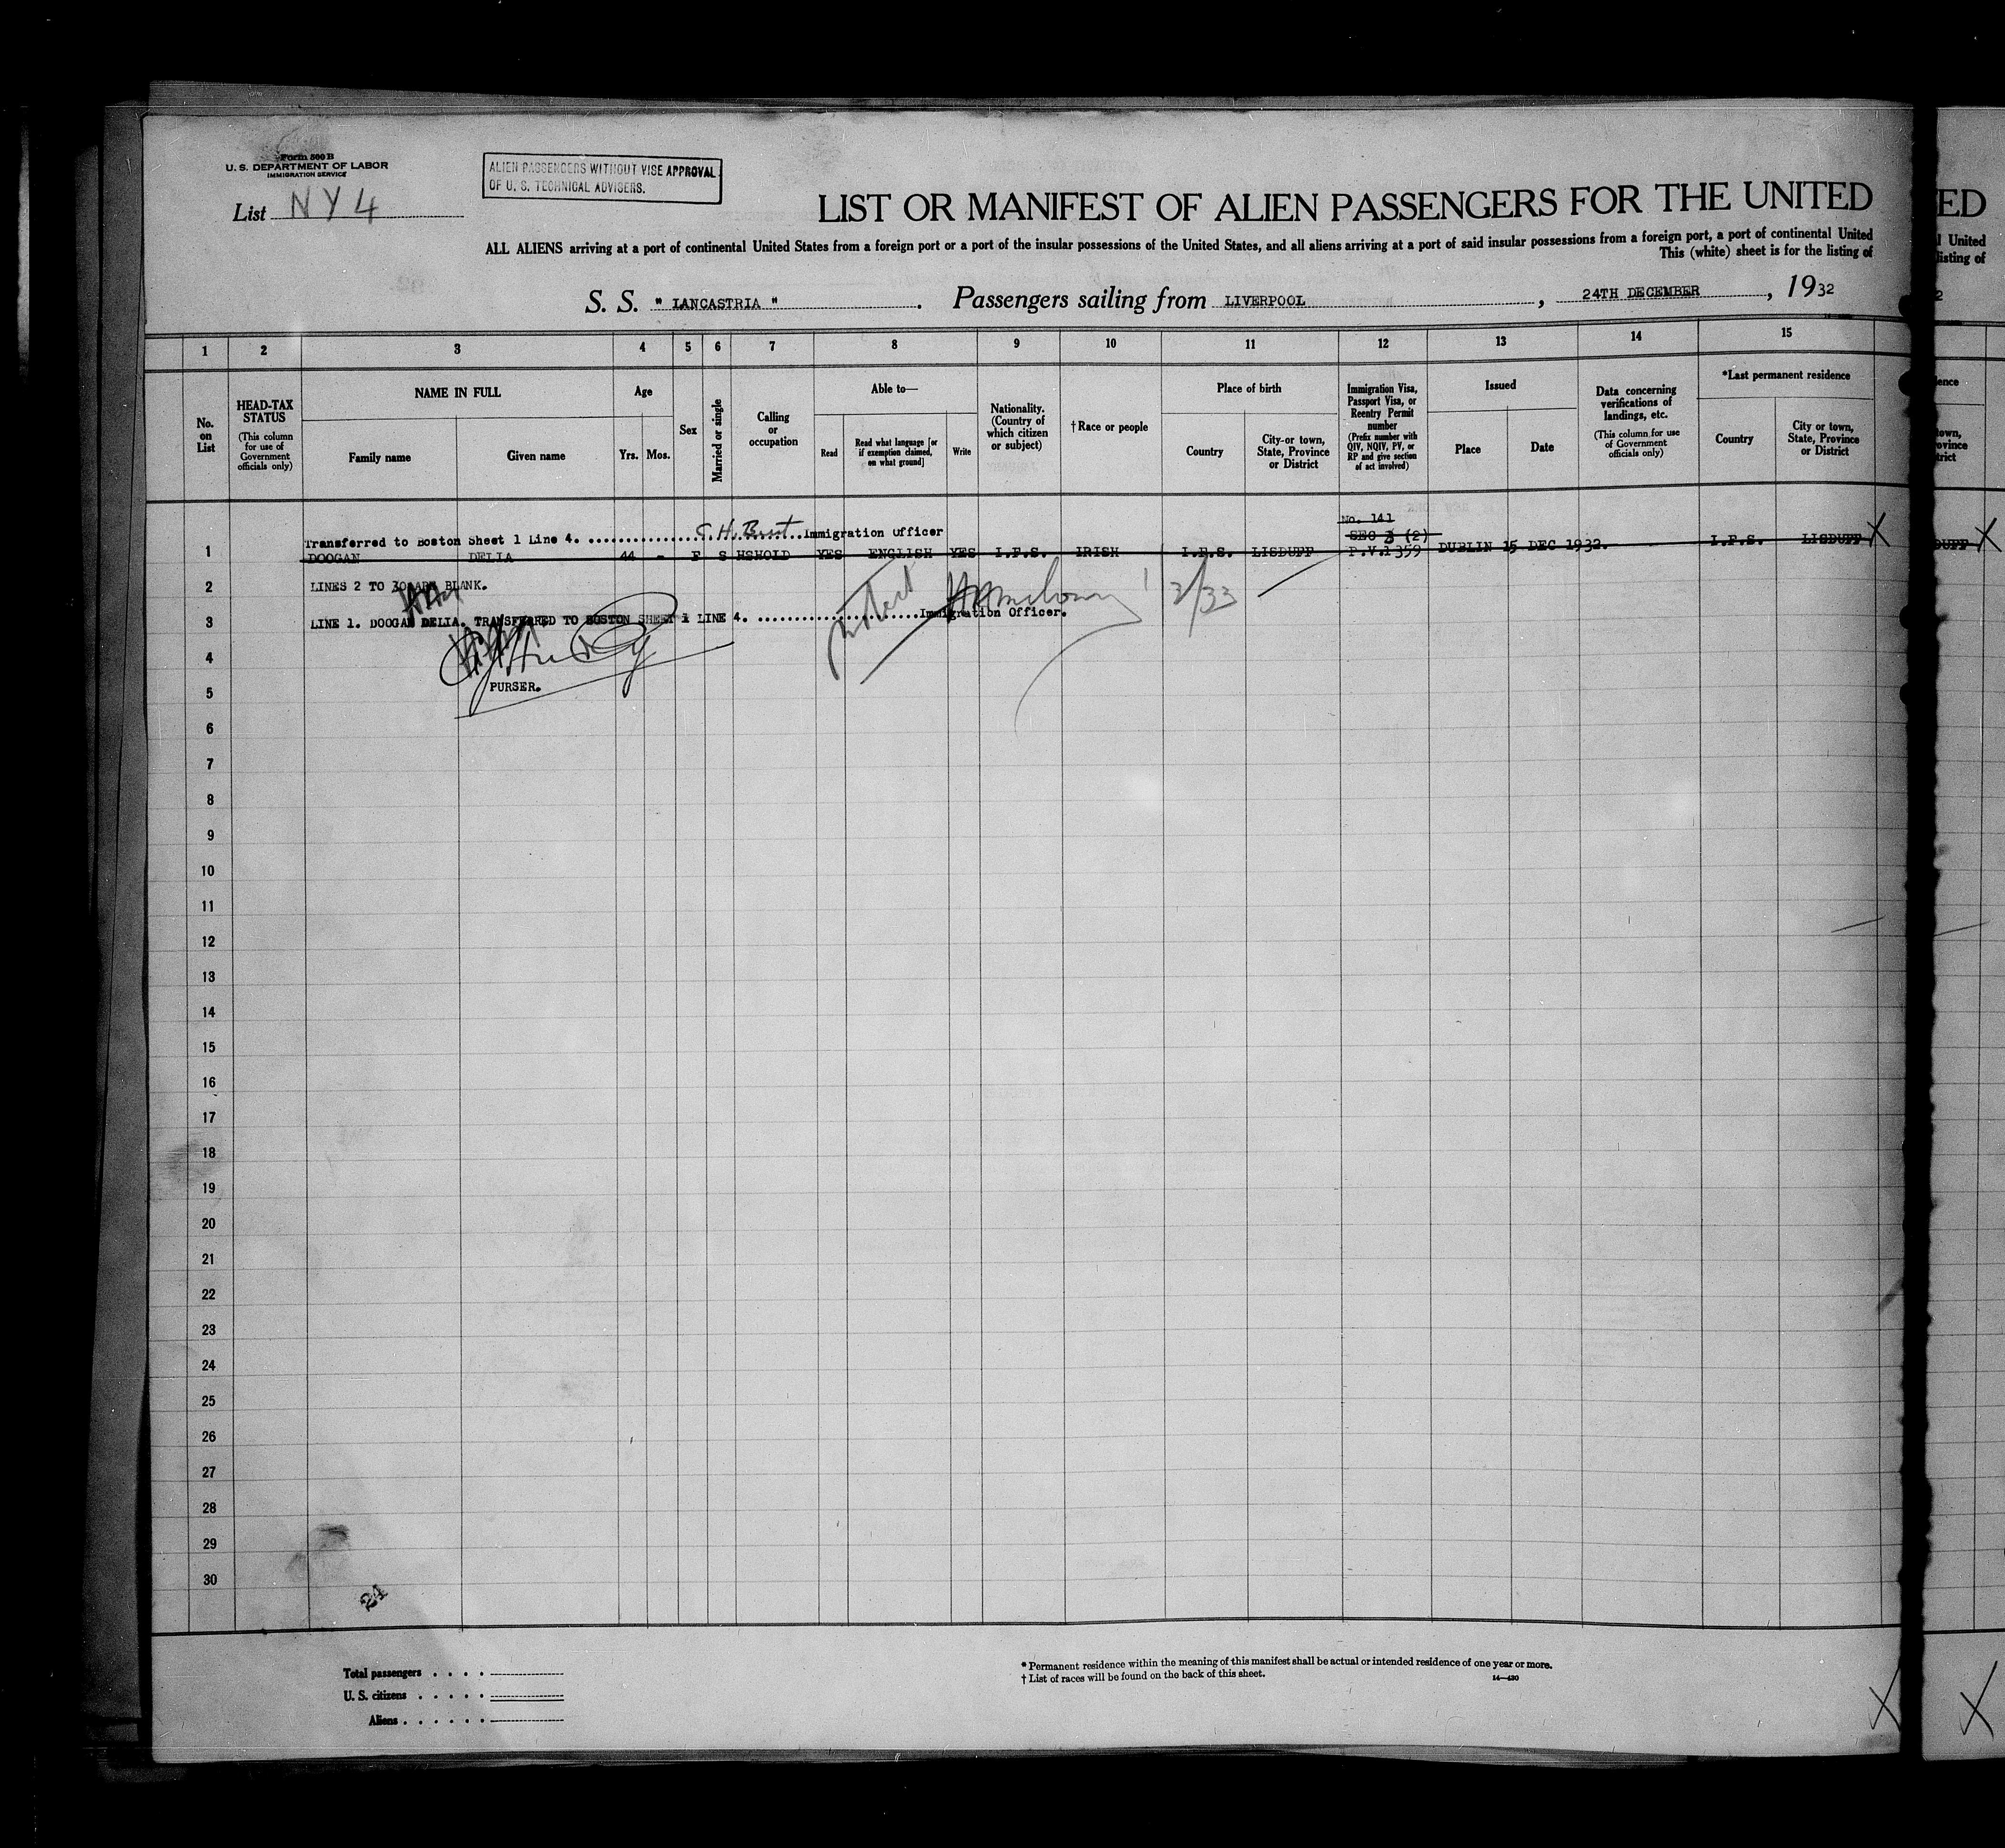 Form 500 B
U. S. DEPARTMENT OF LABOR
IMMIGRATION SERVICE
List NY 4
ALIEN PASSENGERS WITHOUT VISE APPROVAL
OF U. S. TECHNICAL ADVISERS.
LIST OR MANIFEST OF ALIEN PASSENGERS FOR THE UNITED
ED
ALL ALIENS arriving at a port of continental United States from a foreign port or a port of the insular possessions of the United States, and all aliens arriving at a port of said insular possessions from a foreign port, a port of continental United
This (white) sheet is for the listing of
l United
listing of
S. S. " LANCASTRIA ". Passengers sailing from LIVERPOOL, 24TH DECEMBER, 1932
2
1 2 3 4 5 6 7 8 9 10 11 12 13 14 15
No. on List
HEAD-TAX STATUS
(This column for use of Government officials only)
NAME IN FULL
Family name
Given name
Age
Yrs.
Mos.
Sex
Married or single
Calling or occupation
Able to—
Read
Read what language [or if exemption claimed, on what ground]
Write
Nationality. (Country of which citizen or subject)
†Race or people
Place of birth
Country
City or town, State, Province or District
Immigration Visa, Passport Visa, or Reentry Permit number
(Prefix number with QIV, NQIV, PV, or RP and give section of act involved)
Issued
Place
Date
Data concerning verifications of landings, etc.
(This column for use of Government officials only)
*Last permanent residence
Country
City or town, State, Province or District
ence
town,
ovince
trict
No. 141
Transferred to Boston Sheet 1 Line 4. Immigration Officer
SEC 3 (2)
1 DOOGAN DELIA 44 - F S HSHOLD YES ENGLISH YES I.F.S. IRISH I.F.S. LISDUFF P.V.1359 DUBLIN 15 DEC 1932. I.F.S. LISDUFF X
DUFF X
2 LINES 2 TO 30 ARE BLANK.
3 LINE 1. DOOGAN DELIA. TRANSFERRED TO BOSTON SHEET 1 LINE 4. Immigration Officer.
1/2/33
4
5 PURSER.
6
7
8
9
10
11
12
13
14
15
16
17
18
19
20
21
22
23
24
25
26
27
28
29
30
24
Total passengers
U. S. citizens
Aliens
* Permanent residence within the meaning of this manifest shall be actual or intended residence of one year or more.
† List of races will be found on the back of this sheet.
14—430
X
X